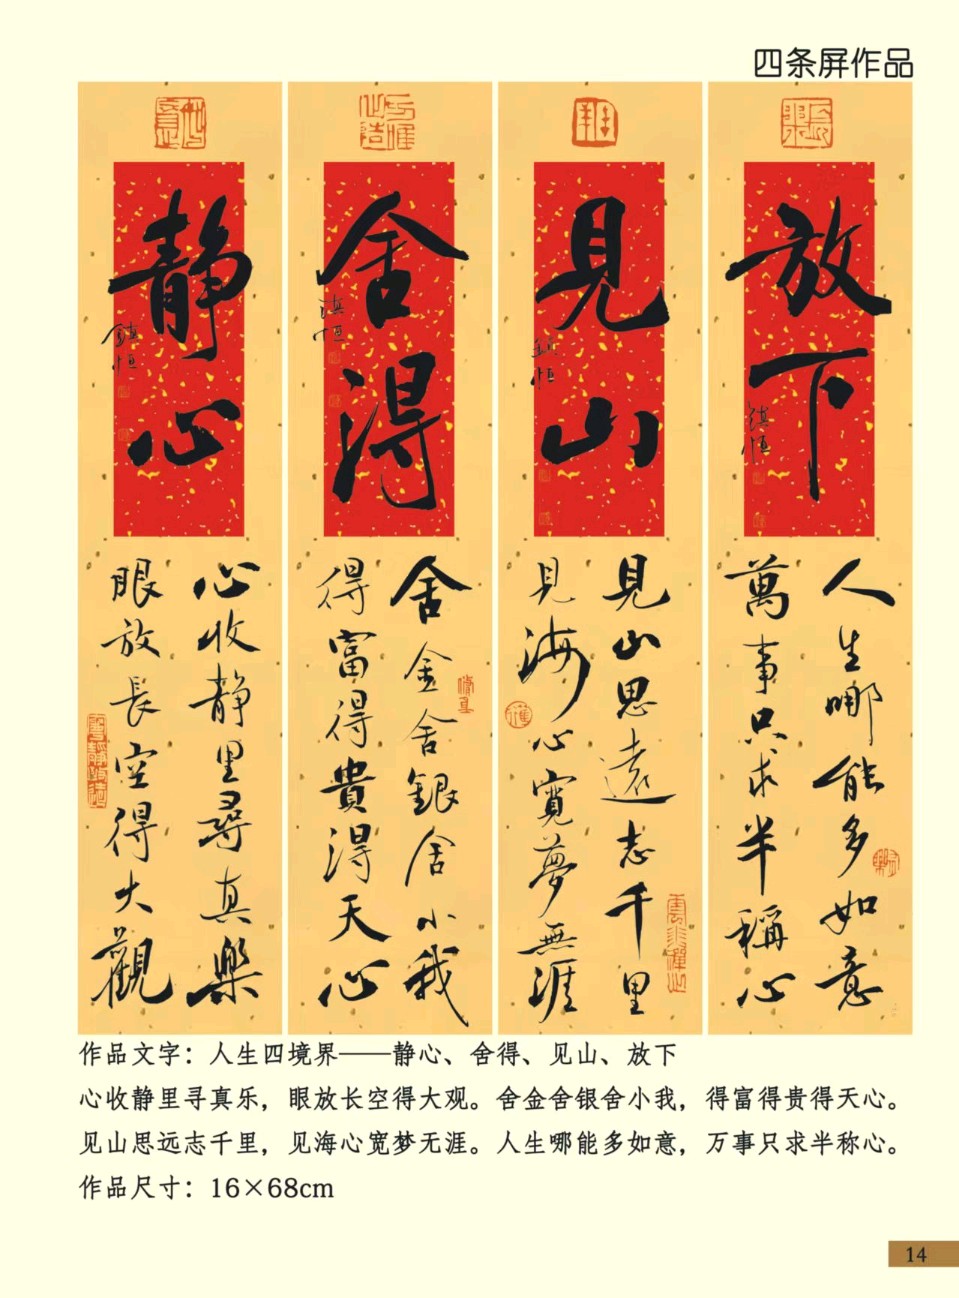 四条屏作品
放下
鎮恒
人生哪能多如意
萬事只求半稱心
見山
鎮恒
見山思遠志千里
見海心寬夢無涯
舍得
鎮恒
舍金舍銀舍小我
得富得貴得天心
静心
鎮恒
心收静里尋真樂
眼放長空得大觀
作品文字：人生四境界——静心、舍得、见山、放下
心收静里寻真乐，眼放长空得大观。舍金舍银舍小我，得富得贵得天心。
见山思远志千里，见海心宽梦无涯。人生哪能多如意，万事只求半称心。
作品尺寸：16×68cm
14